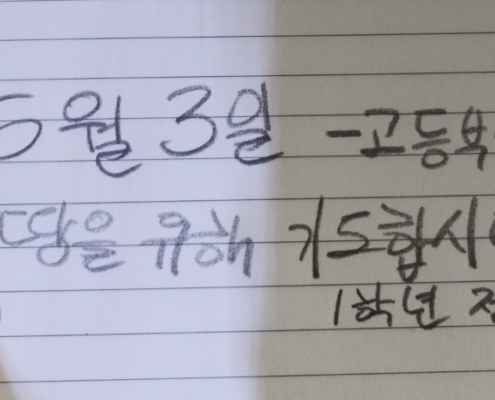 5월 3일 -고등부
땅을 위해 기도합시다
1학년